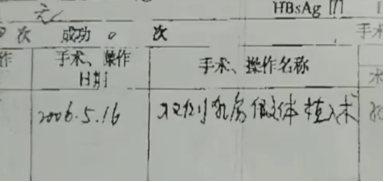 无 HBsAg
次 成功 。 次 手
作 手术、操作 手术、操作名称 术
日期
2006.5.16 双侧乳房假体植入术